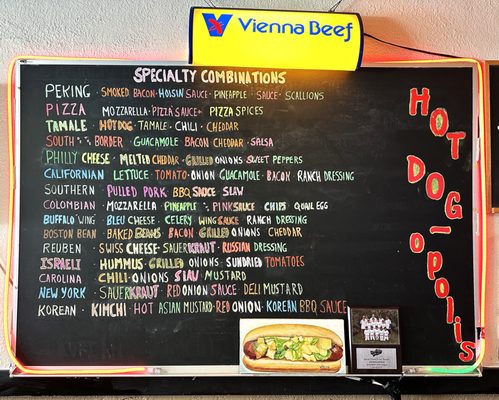 Vienna Beef
SPECIALTY COMBINATIONS
PEKING · SMOKED BACON · HOISIN SAUCE · PINEAPPLE · SAUCE · SCALLIONS
PIZZA MOZZARELLA · PIZZA SAUCE · PIZZA SPICES
TAMALE · HOT DOG · TAMALE · CHILI · CHEDDAR
SOUTH OF BORDER · GUACAMOLE BACON CHEDDAR · SALSA
PHILLY CHEESE · MELTED CHEDDAR · GRILLED ONIONS SWEET PEPPERS
CALIFORNIAN LETTUCE · TOMATO · ONION GUACAMOLE · BACON RANCH DRESSING
SOUTHERN · PULLED PORK BBQ SAUCE SLAW
COLOMBIAN · MOZZARELLA PINEAPPLE · PINK SAUCE CHIPS QUAIL EGG
BUFFALO "WING" · BLEU CHEESE · CELERY WING SAUCE RANCH DRESSING
BOSTON BEAN · BAKED BEANS BACON GRILLED ONIONS CHEDDAR
REUBEN · SWISS CHEESE · SAUERKRAUT · RUSSIAN DRESSING
ISRAELI HUMMUS · GRILLED ONIONS SUNDRIED TOMATOES
CAROLINA CHILI · ONIONS SLAW MUSTARD
NEW YORK · SAUERKRAUT RED ONION SAUCE DELI MUSTARD
KOREAN · KIMCHI · HOT ASIAN MUSTARD · RED ONION · KOREAN BBQ SAUCE
HOT
DOG-
OPOLIS